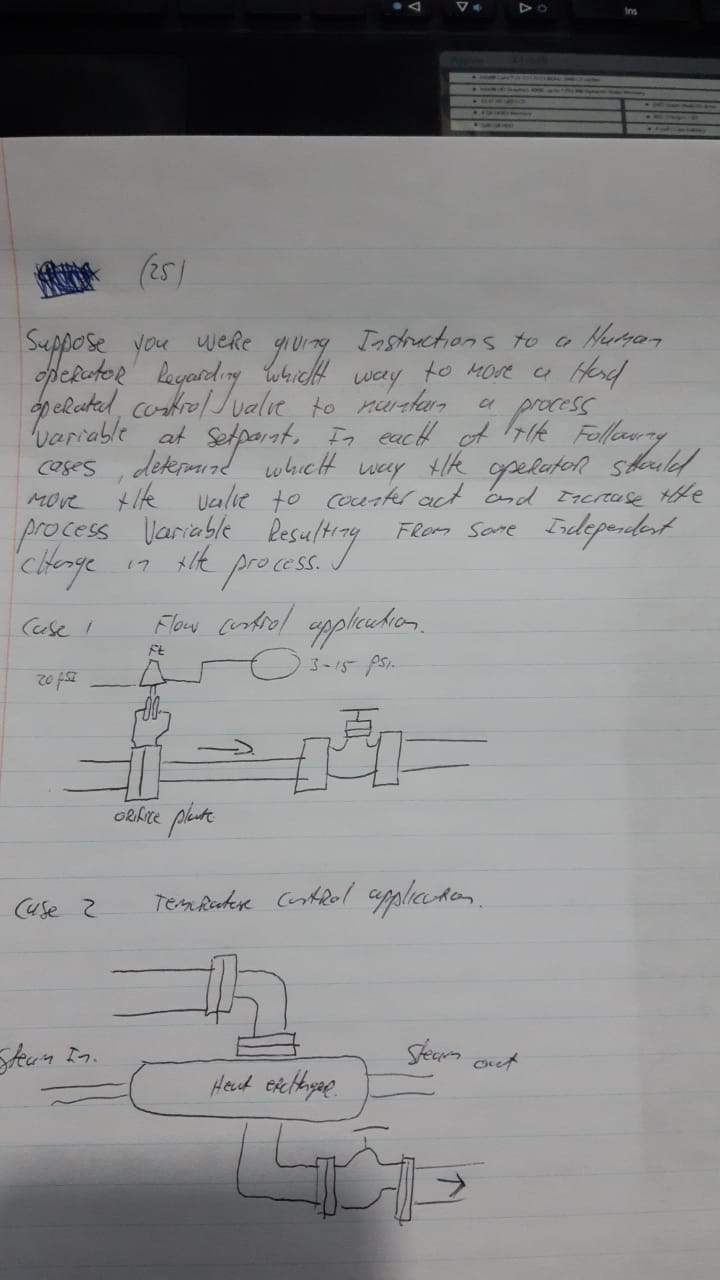 Ins
(25)
Suppose you were giving Instructions to a Human
operator Regarding which way to move a Hand
operated control valve to maintain a process
variable at setpoint. In each of the Following
cases, determine which way the operator should
move the valve to counteract and increase the
process Variable Resulting From some Independent
change in the process.
Case 1 Flow control application.
Ft
20 PSI 3-15 PSI.
orifice plate
Case 2 Temperature control application.
Steam In. Steam out
Heat exchanger.